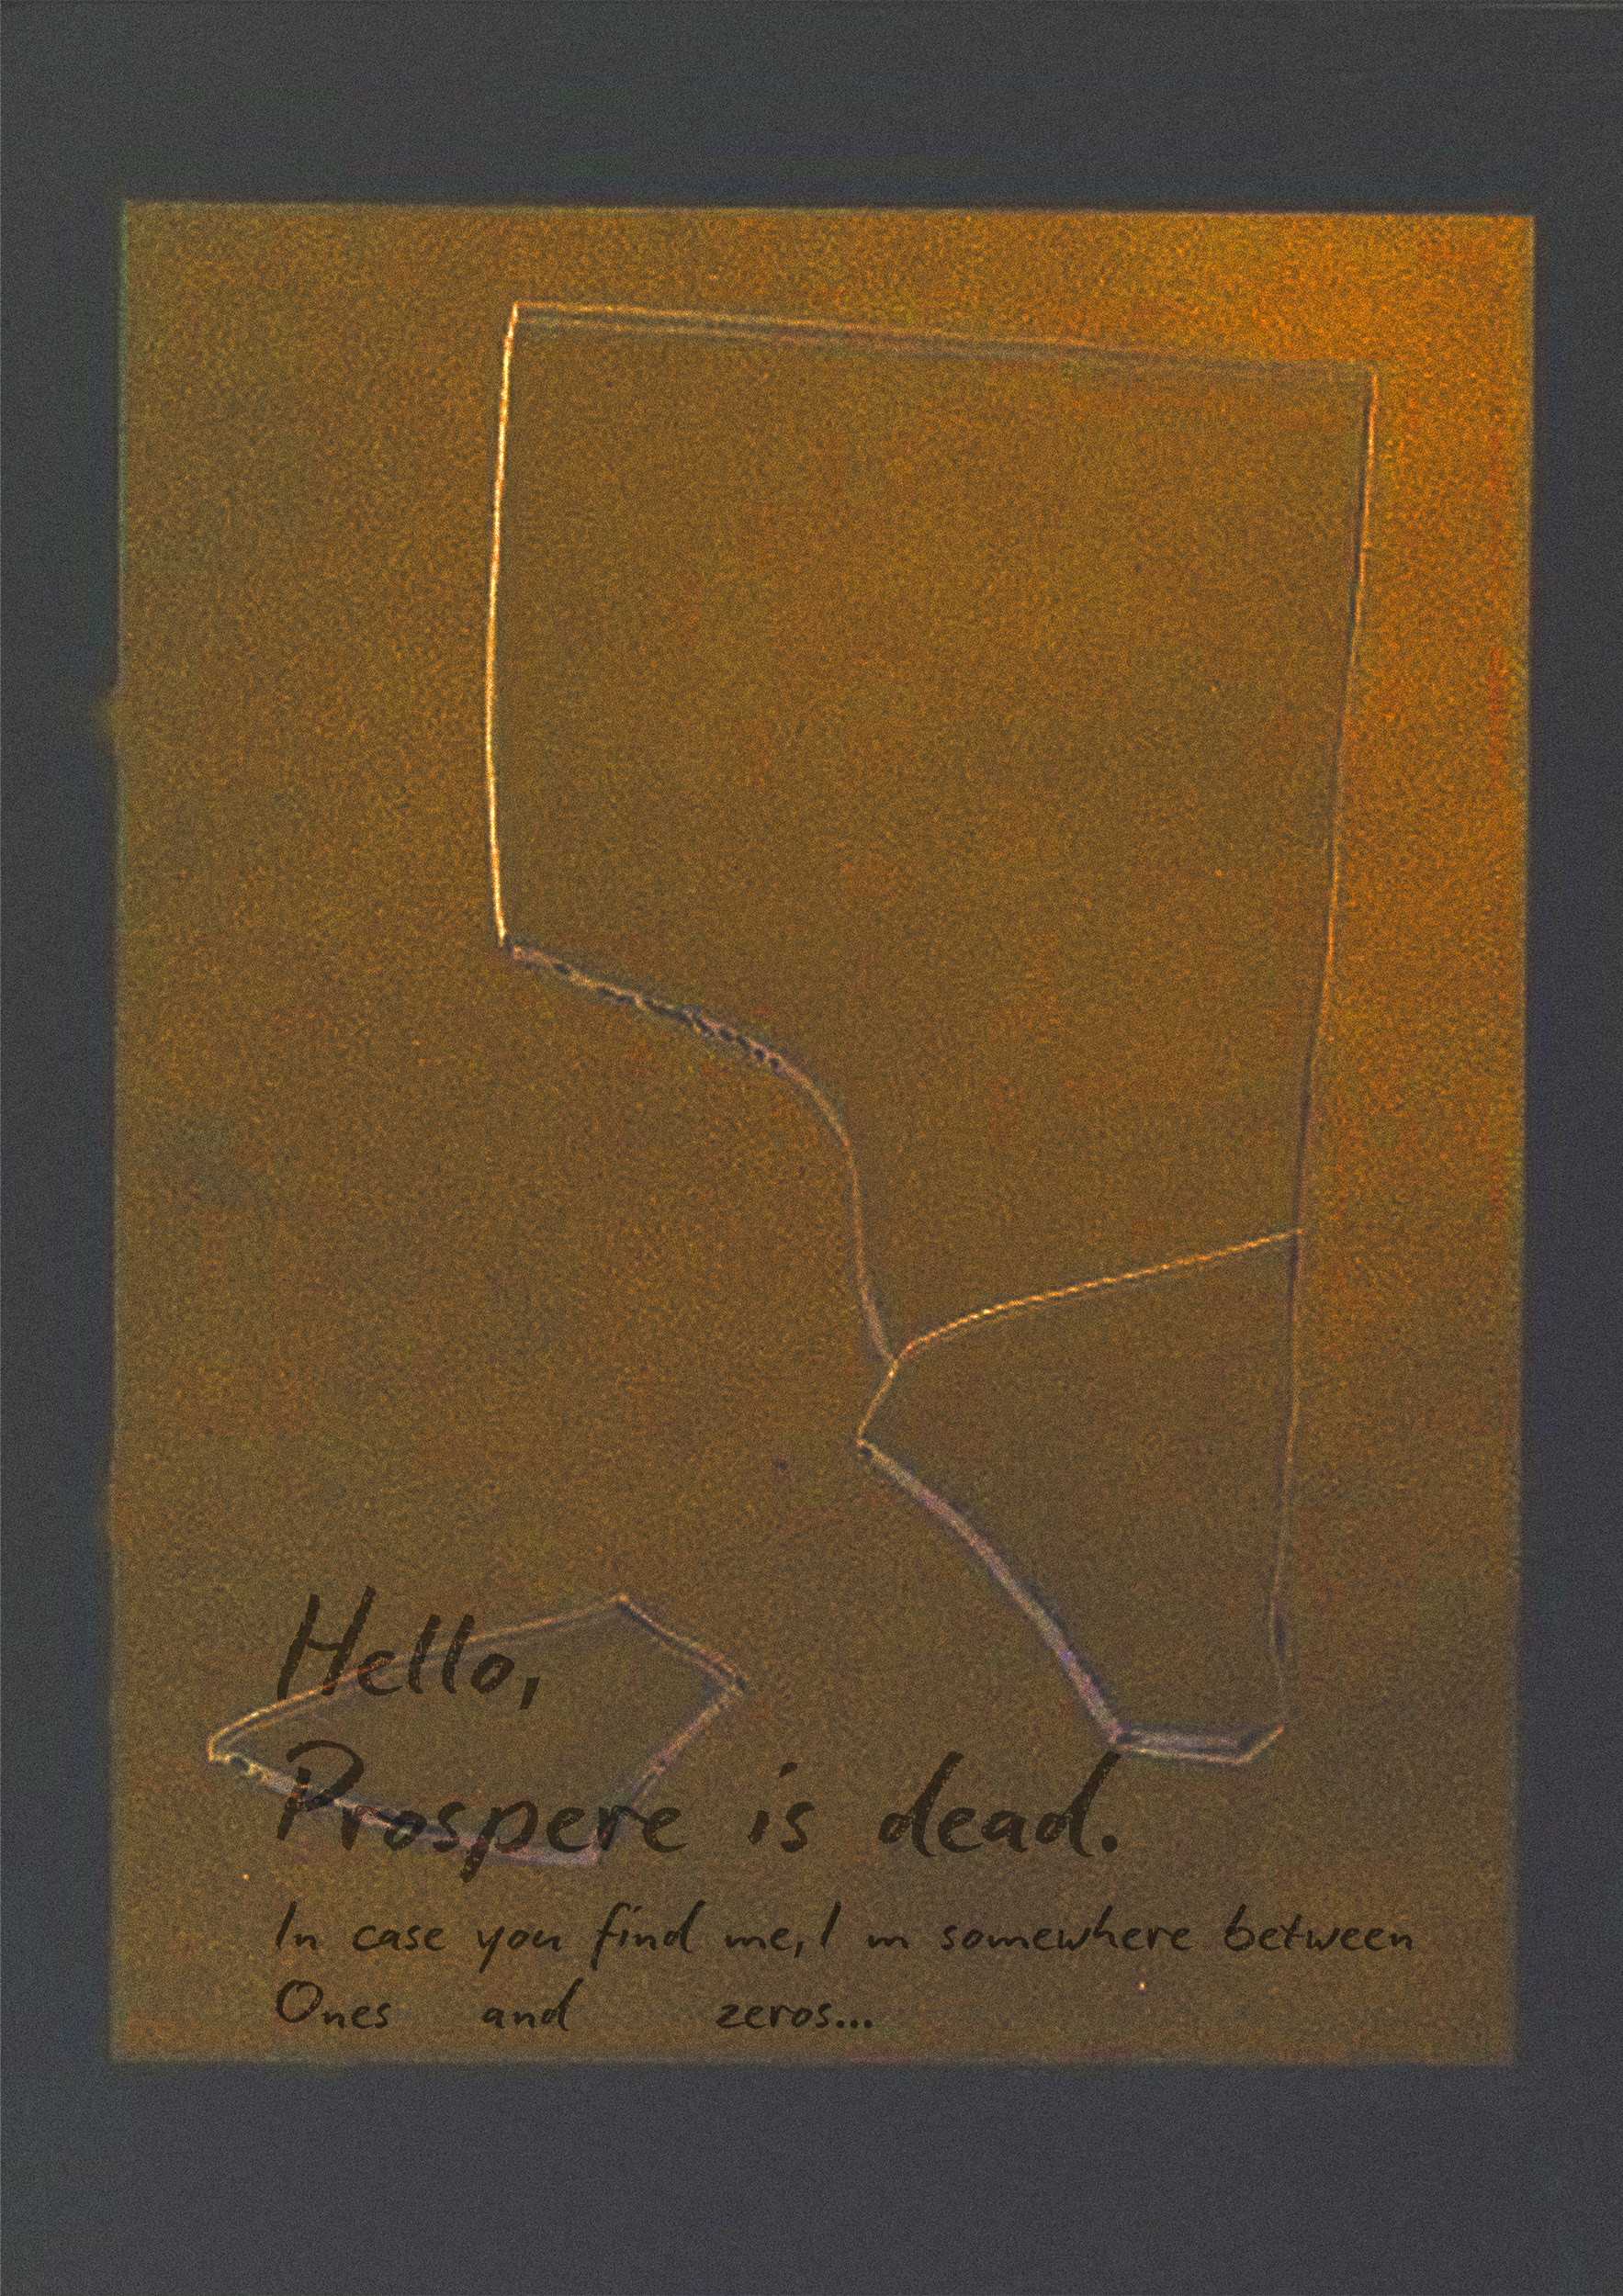 Hello,
Prospere is dead.
In case you find me, I m somewhere between
Ones and zeros...